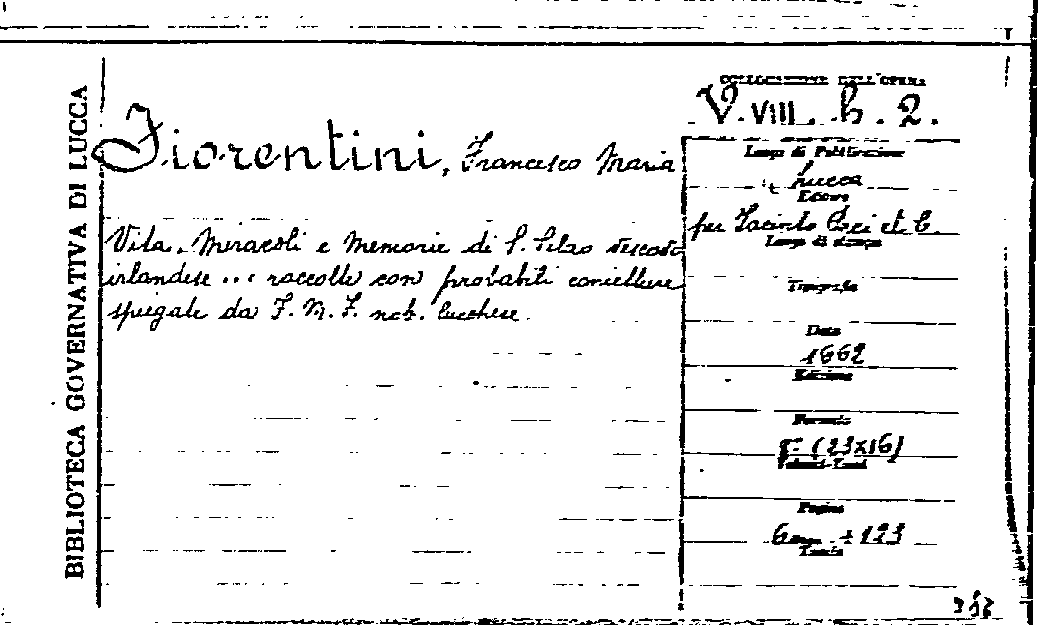 BIBLIOTECA GOVERNATIVA DI LUCCA
COLLOCAZIONE DELL'OPERA
V. VIII. h. 2.
Fiorentini, Francesco Maria
Vita, Miracoli e Memorie di S.
irlandese ... raccolte con probabili conietture
spiegate da F. M. F. nob. lucchese.
Luogo di Pubblicazione
Lucca
Editore
per Iacinto Paci et C.
Luogo di stampa
Tipografia
Data
1662
Edizione
Formato
(23x16)
Volumi-Tomi
Pagine
6 + 123
Tavole